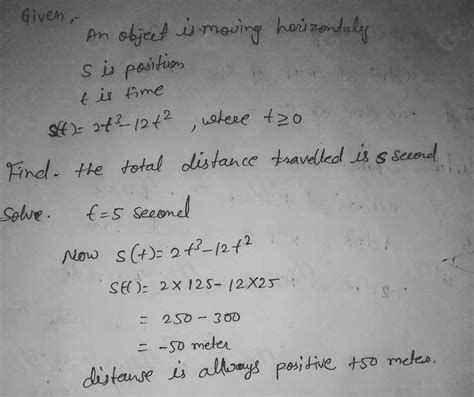 Given,-
An object is moving horizontaly
S is position
t is time
s(t)= 2t³-12t² , where t≥0
Find- the total distance travelled is 5 second.
Solve. t=5 second
Now s(t)= 2t³-12t²
s(t)= 2×125-12×25
= 250-300
= -50 meter
distance is always positive +50 meter.